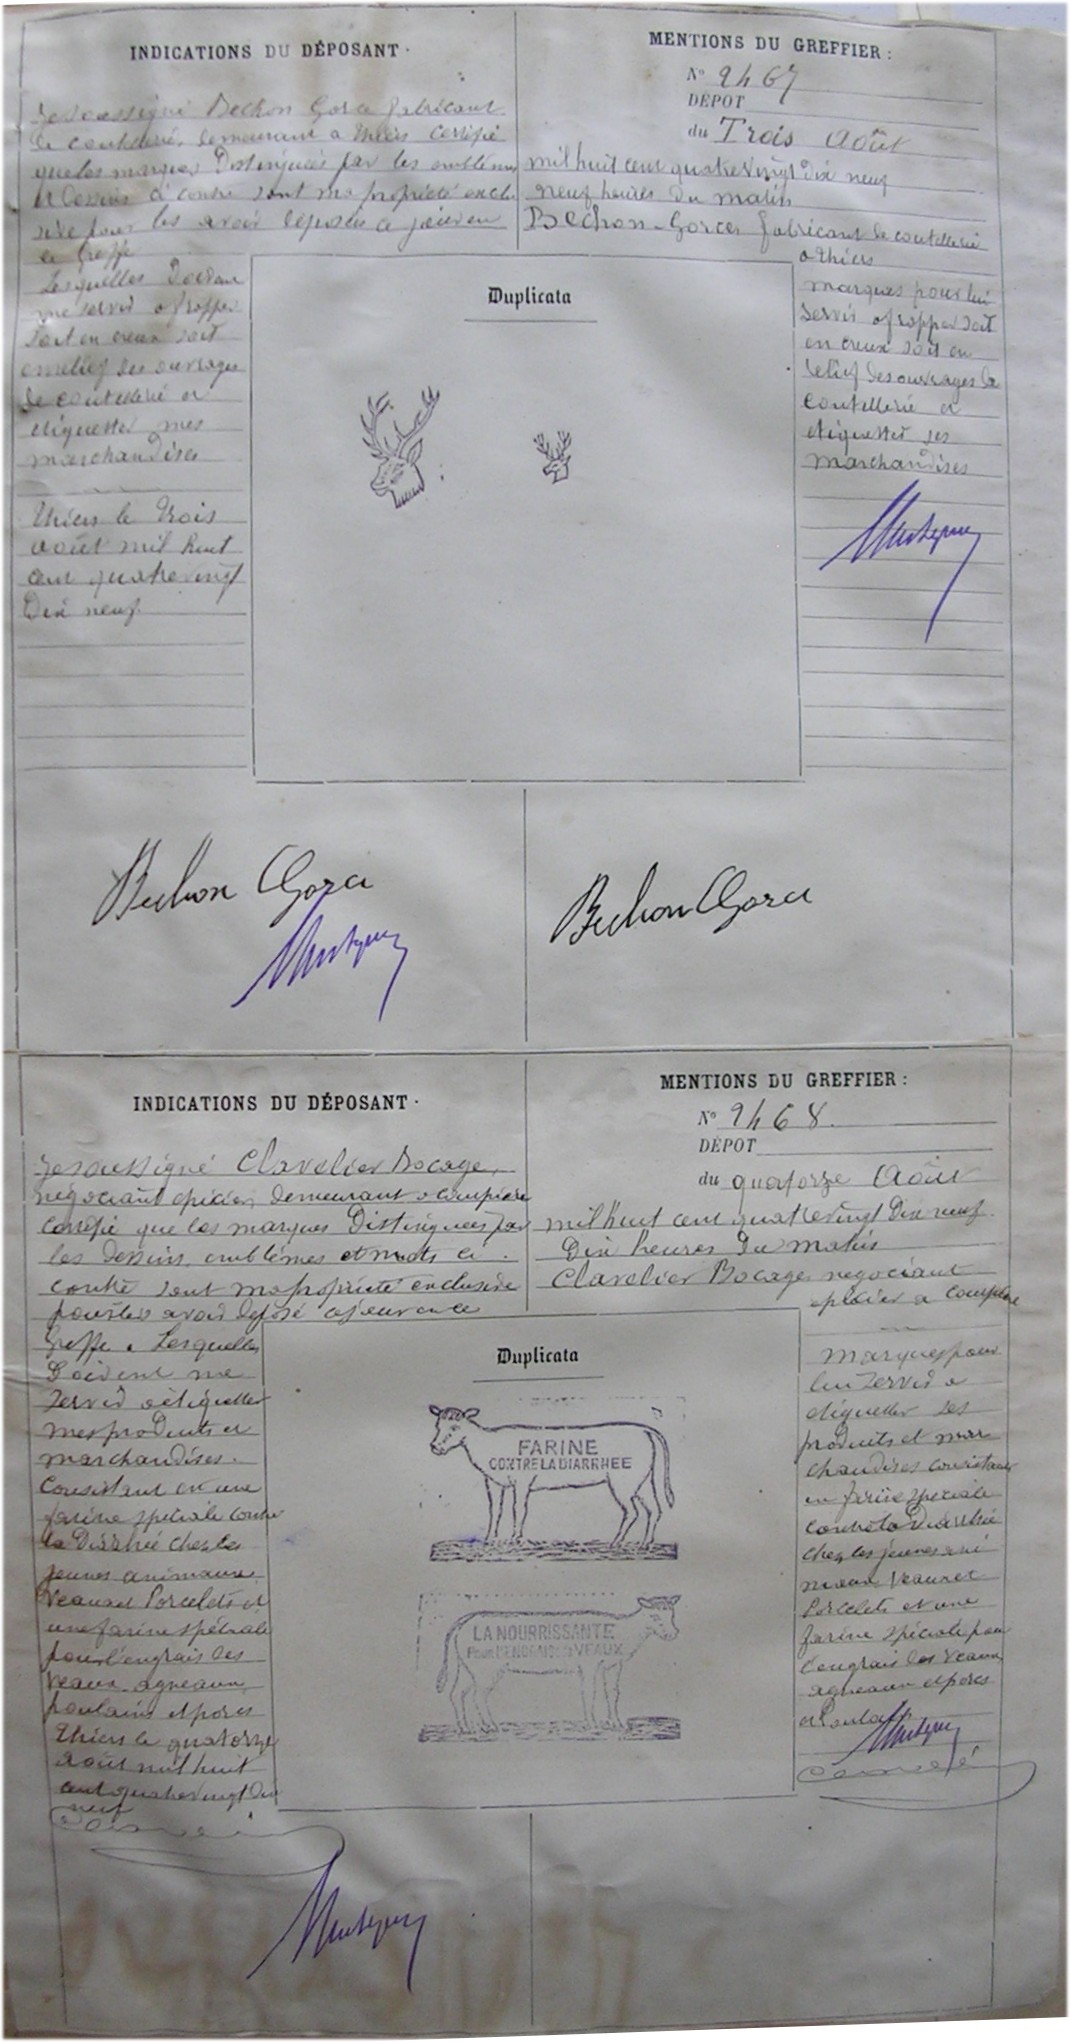 INDICATIONS DU DÉPOSANT.
Je soussigné Bechon Gorce fabricant
de coutellerie, demeurant a Thiers certifie
que les marques Distinguées par les emblèmes
et Dessins ci contre sont ma propriété exclu
sive pour les avoir déposés ce jour en
ce Greffe
Lesquelles Doivent
me servir a frapper
soit en creux soit
en relief des ouvrages
de coutellerie et
etiquetter mes
marchandises
Thiers le Trois
août mil huit
cent quatrevingt
Dix neuf.
MENTIONS DU GREFFIER :
N° 2467
DÉPOT
du Trois Août
mil huit cent quatrevingt Dix neuf
neuf heures Du matin
Bechon-Gorce fabricant de coutellerie
a Thiers
marques pour lui
servir a frapper soit
en creux soit en
relief des ouvrages de
coutellerie et
etiquetter ses
marchandises
Duplicata
Bechon Gorce
Bechon Gorce
INDICATIONS DU DÉPOSANT.
Je soussigné Clavelier Bocage,
négociant épicier, demeurant a Courpière
certifie que les marques Distinguées par
les dessins, emblèmes et mots ci
contre sont ma propriété exclusive
pour les avoir déposé ce jour en ce
Greffe. Lesquelles
Doivent me
servir a étiquetter
mes produits et
marchandises.
Consistant en une
farine spéciale contre
la Diarrhée chez les
jeunes animaux
Veaux et Porcelets et
une farine spéciale
pour l'engrais des
veaux, agneaux,
poulains et porcs
Thiers le quatorze
août mil huit
cent quatrevingt Dix
neuf
MENTIONS DU GREFFIER :
N° 2468.
DÉPOT
du quatorze Août
mil huit cent quatrevingt Dix neuf.
Dix heures Du matin
Clavelier Bocage negociant
epicier a Courpière
marques pour
lui servir a
etiquetter ses
produits et mar
chandises consistant
en farine speciale
contre la Diarrhée
chez les jeunes ani
maux Veaux et
Porcelets et une
farine spéciale pour
l'engrais des veaux
agneaux et porcs
et Poulains
Duplicata
FARINE
CONTRE LA DIARRHEE
LA NOURRISSANTE
POUR L'ENGRAIS des VEAUX